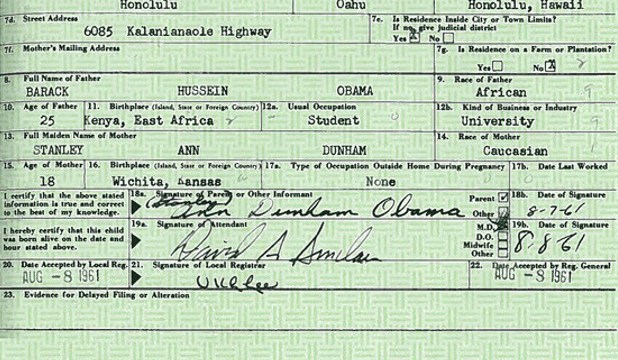 Honolulu Oahu Honolulu, Hawaii
7d. Street Address
6085 Kalanianaole Highway
7e. Is Residence Inside City or Town Limits?
If no, give judicial district
Yes X No
7f. Mother's Mailing Address
7g. Is Residence on a Farm or Plantation?
Yes No X
8. Full Name of Father
BARACK HUSSEIN OBAMA
9. Race of Father
African 9
10. Age of Father
25
11. Birthplace (Island, State or Foreign Country)
Kenya, East Africa
12a. Usual Occupation
Student
12b. Kind of Business or Industry
University 9
13. Full Maiden Name of Mother
STANLEY ANN DUNHAM
14. Race of Mother
Caucasian 1
15. Age of Mother
18
16. Birthplace (Island, State or Foreign Country)
Wichita, Kansas
17a. Type of Occupation Outside Home During Pregnancy
None
17b. Date Last Worked
I certify that the above stated
information is true and correct
to the best of my knowledge.
18a. Signature of Parent or Other Informant
(Stanley) Ann Dunham Obama
Parent
Other
18b. Date of Signature
8-7-61
I hereby certify that this child
was born alive on the date and
hour stated above.
19a. Signature of Attendant
David A Sinclair
M.D.
D.O.
Midwife
Other
19b. Date of Signature
8-8-61
20. Date Accepted by Local Reg.
AUG -8 1961
21. Signature of Local Registrar
U K L Lee
22. Date Accepted by Reg. General
AUG -8 1961
23. Evidence for Delayed Filing or Alteration